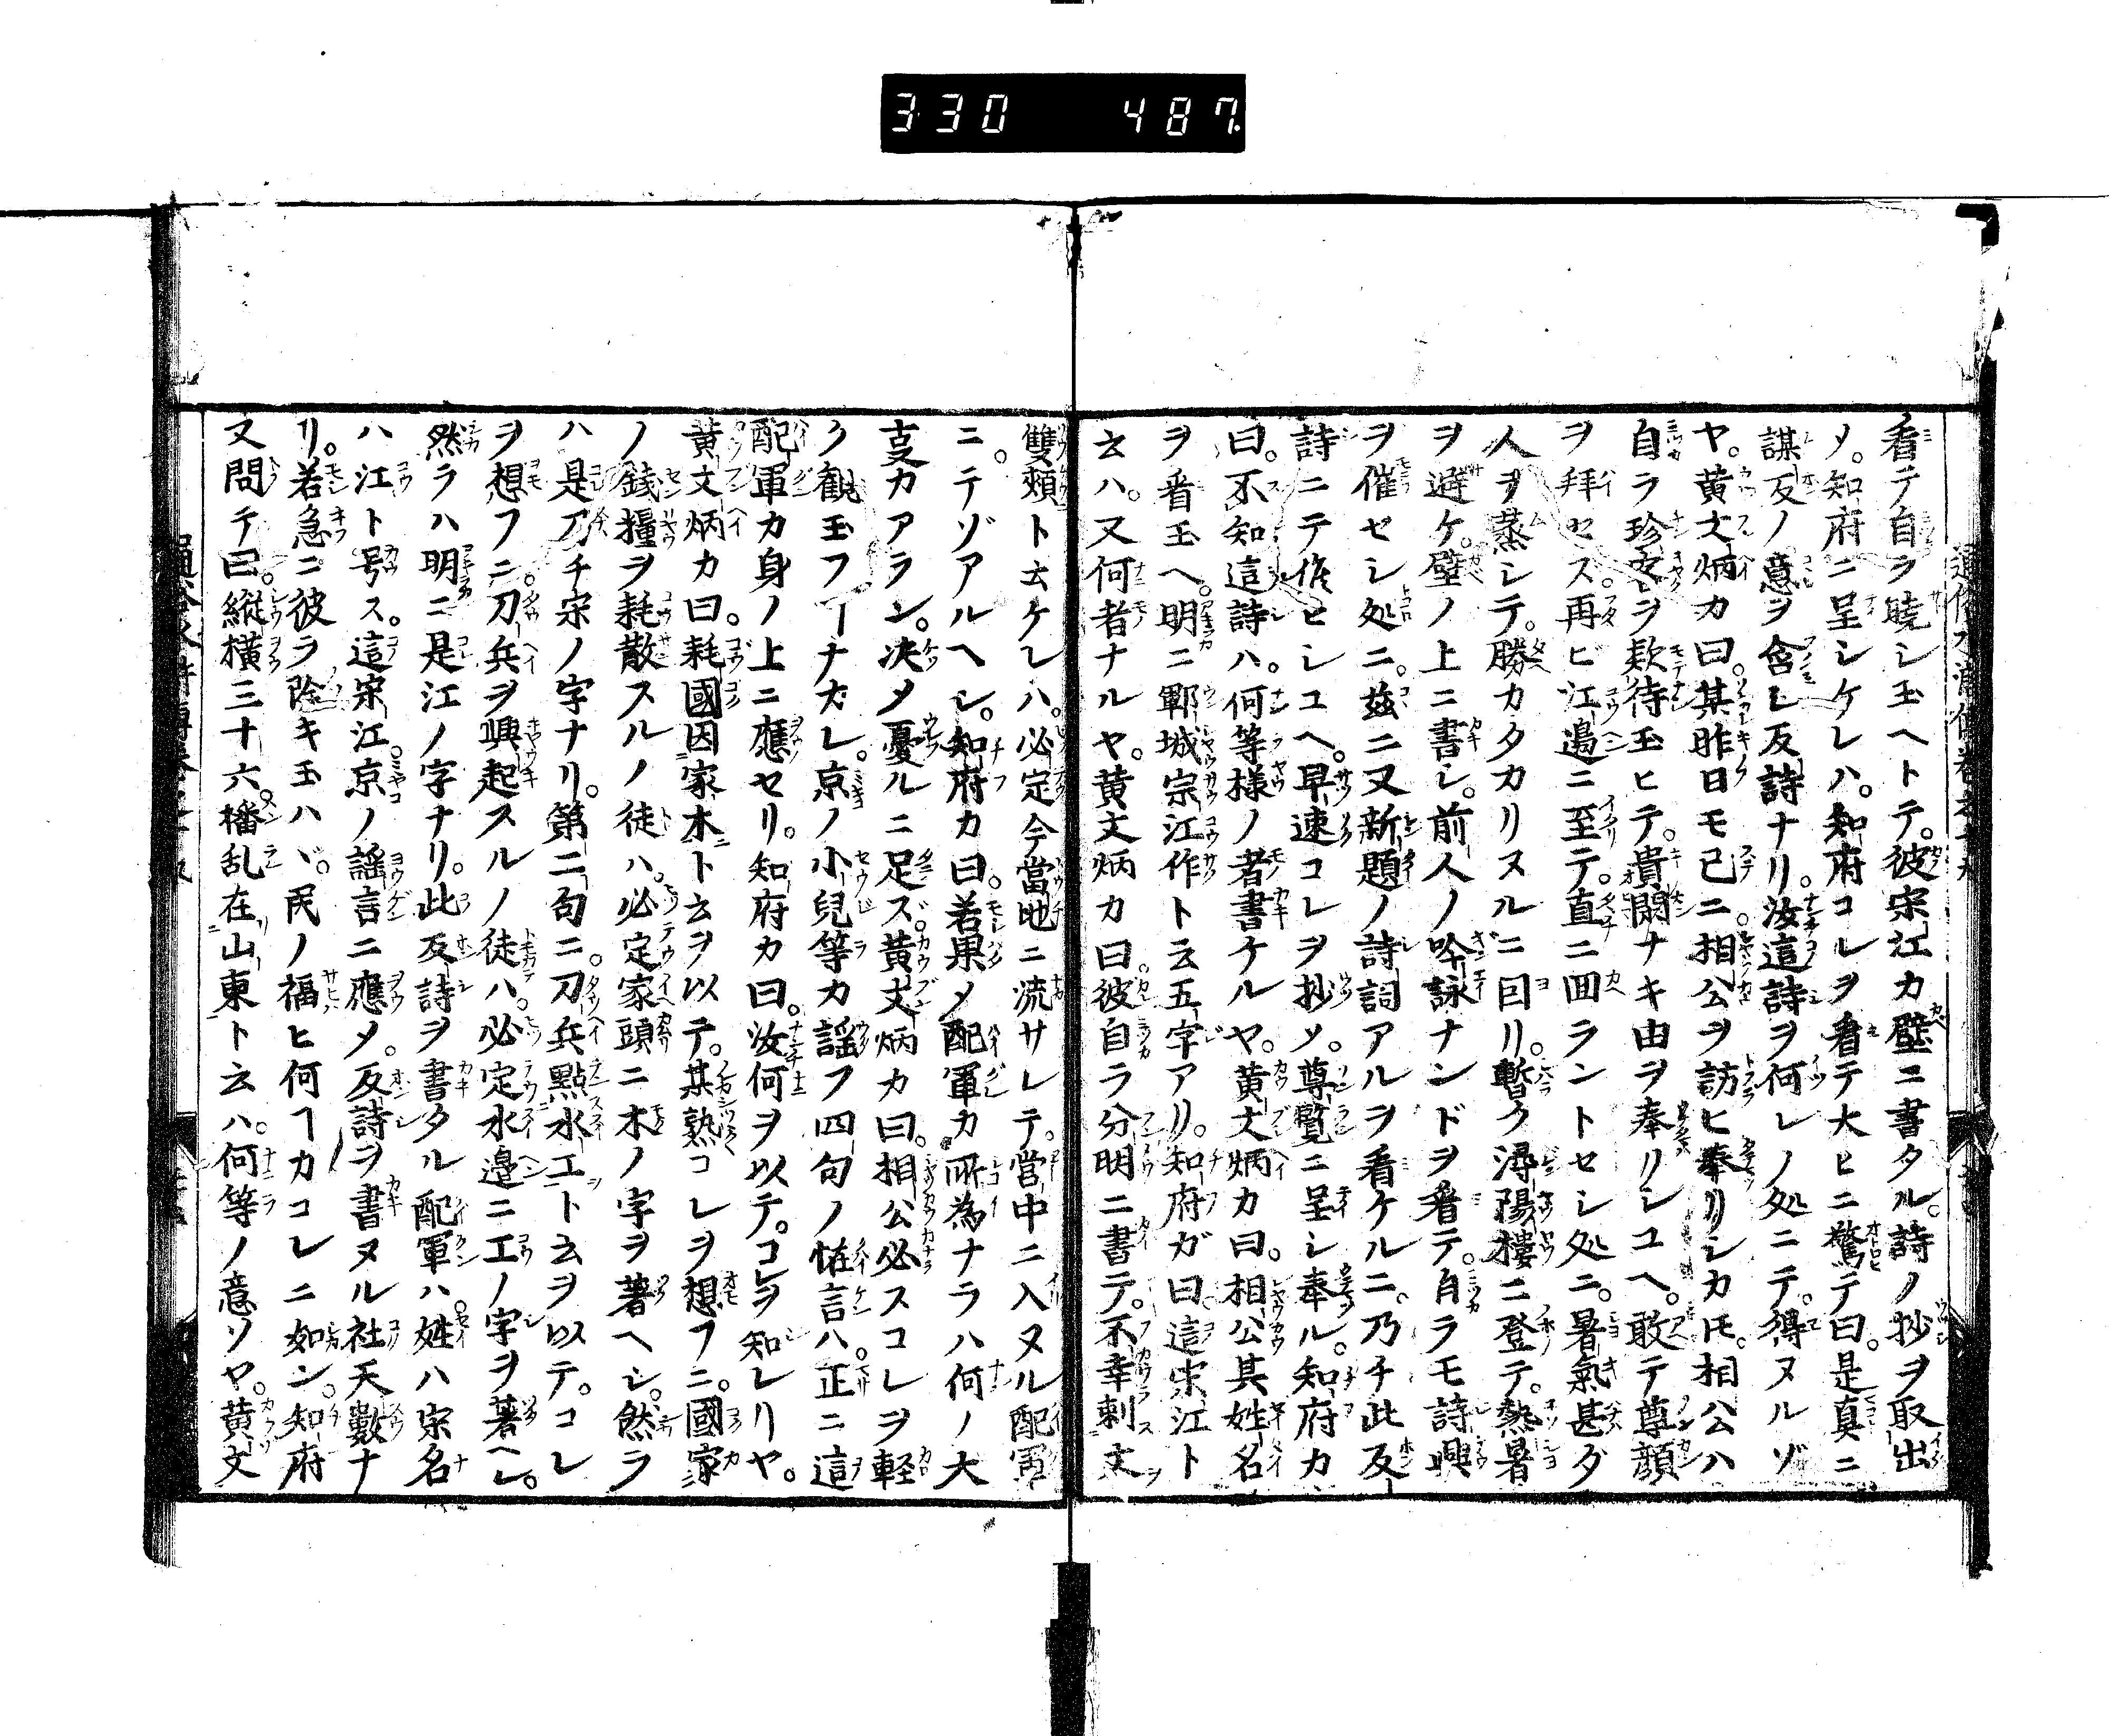 330 487
看テ自ラ曉シ玉ヘトテ。彼宋江カ壁ニ書タル。詩ノ抄ヲ取出
メ。知府ニ呈シケレハ。知府コレヲ看テ大ヒニ驚テ曰。是真ニ
謀反ノ意ヲ含レ反詩ナリ。汝這詩ヲ何レノ処ニテ。得ヌルゾ
ヤ。黄文炳カ曰。某昨日モ已ニ相公ヲ訪ヒ奉リシカ𪜈。相公ハ
自ラ珍客ヲ欵待玉ヒテ。貴閑ナキ由ヲ奉リシユヘ。敢テ尊顔
ヲ拜セス。再ヒ江邉ニ至テ。直ニ回ラントセシ処ニ。暑氣甚ダ
人ヲ蒸シテ。勝カタカリヌルニ因リ。暫ク潯陽樓ニ登テ。熱暑
ヲ避ケ。壁ノ上ニ書シ。前人ノ吟詠ナンドヲ看テ。自ラモ詩興
ヲ催セシ処ニ。茲ニ又新題ノ詩詞アルヲ看ケルニ。乃チ此反
詩ニテ候ヒシユヘ。早速コレヲ抄メ。尊覧ニ呈シ奉ル。知府カ
曰。不知這詩ハ。何等様ノ者書ケルヤ。黄文炳カ曰。相公其姓名
ヲ看玉ヘ。明ニ鄆城宗江作ト云五字アリ。知府ガ曰。這宋江ト
云ハ。又何者ナルヤ。黄文炳カ曰。彼自ラ分明ニ書テ。不幸刺文
雙頰ト云ケレハ。必定今當地ニ流サレテ。営中ニ入ヌル配軍
ニ。テゾアルヘシ。知府カ曰。若果メ配軍カ所為ナラハ何ノ大
叓カアラン。决メ憂ルニ足ズ。黄文炳カ曰。相公必スコレヲ軽
ク觀玉フヿナカレ。京ノ小兒等カ謡フ四句ノ恠言ハ。正ニ這
配軍カ身ノ上ニ應セリ。知府カ曰。汝何ヲ以テ。コレヲ知レリヤ。
黄文炳カ曰。耗國因家木ト云ヲ以テ。某熟コレヲ想フニ。國家
ノ銭糧ヲ耗散スルノ徒ハ。必定家頭ニ木ノ字ヲ著ヘシ。然ラ
ハ是乃チ宋ノ字ナリ。第二句ニ。刀兵點水工ト云ヲ以テ。コレ
ヲ想フニ。刀兵ヲ興起スルノ徒ハ。必定水邉ニ工ノ字ヲ著ヘシ。
然ラハ明ニ是江ノ字ナリ。此反詩ヲ書タル配軍ハ。姓ハ宋名
ハ江ト号ス。這宋江。京ノ謡言ニ應メ。反詩ヲ書ヌル社天數ナ
リ。若急ニ彼ラ除キ玉ハヾ。民ノ福ヒ何ヿカコレニ如ン。知府
又問テ曰。縦横三十六。播乱在山東ト云ハ。何等ノ意ソヤ。黄文